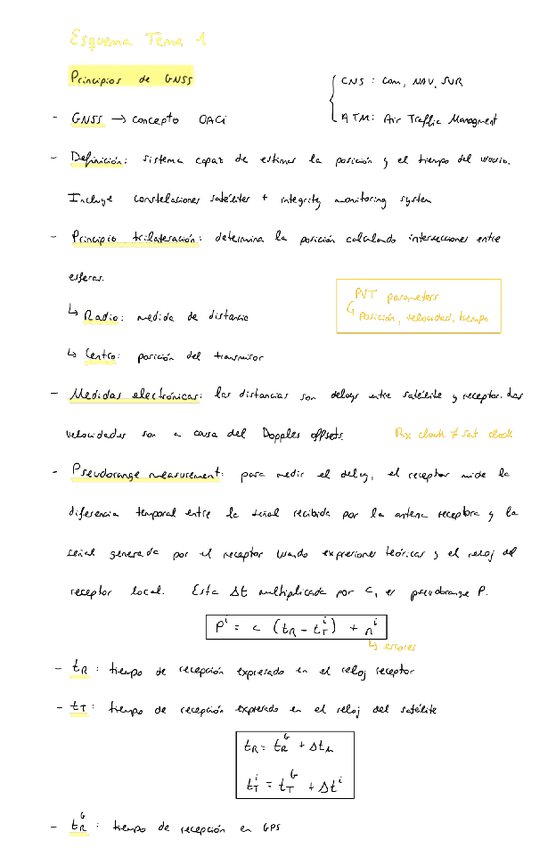 Esquema Tema 1
Principios de GNSS
CNS: Com, NAV, SUR
ATM: Air Traffic Managment
- GNSS → concepto OACi
- Definición: sistema capaz de estimar la posición y el tiempo del usuario.
Incluye constelaciones satélites + integrity monitoring system
- Principio trilateración: determina la posición calculando intersecciones entre
esferas.
PVT parameters
↳ posición, velocidad, tiempo
↳ Radio: medida de distancia
↳ Centro: posición del transmisor
- Medidas electrónicas: las distancias son delays entre satélite y receptor. Las
velocidades son a causa del Doppler offsets.
Rx clock ≠ sat clock
- Pseudorange measurement: para medir el delay, el receptor mide la
diferencia temporal entre la señal recibida por la antena receptora y la
señal generada por el receptor usando expresiones teóricas y el reloj del
receptor local. Esta Δt multiplicada por c, es pseudorange P.
Pⁱ = c (t_R - t_Tⁱ) + nⁱ
↳ errores
- t_R: tiempo de recepción expresado en el reloj receptor
- t_T: tiempo de recepción expresado en el reloj del satélite
t_R = t_R^G + Δt_R
t_Tⁱ = t_T^G + Δtⁱ
- t_R^G: tiempo de recepción en GPS